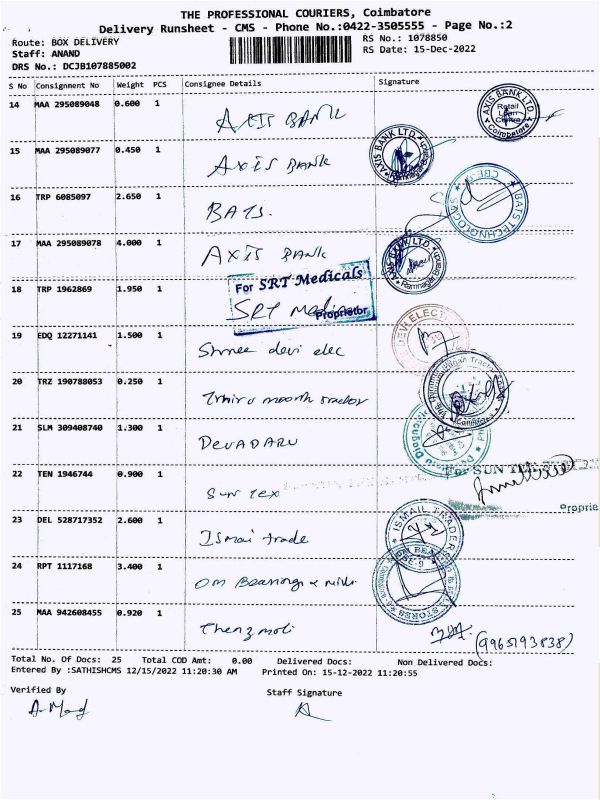 THE PROFESSIONAL COURIERS, Coimbatore
Delivery Runsheet - CMS - Phone No.:0422-3505555 - Page No.:2
Route: BOX DELIVERY RS No.: 1078850
Staff: ANAND RS Date: 15-Dec-2022
DRS No.: DCJB107885002
S No Consignment No Weight PCS Consignee Details Signature
14 MAA 295089048 0.600 1 AXIS BANK
AXIS BANK LTD. Retail Loan Centre Coimbatore
15 MAA 295089077 0.450 1 AXIS BANK
AXIS BANK LTD. Ramnagar Branch
16 TRP 6085097 2.650 1 BATS.
17 MAA 295089078 4.000 1 AXIS BANK
AXIS BANK LTD. Ramnagar Branch
18 TRP 1962869 1.950 1
For SRT Medicals
SRT
Proprietor
19 EDQ 12271141 1.500 1 Shree devi elec
DEVI ELECT
20 TRZ 190788053 0.250 1 Thiru moorth tractor
21 SLM 309408740 1.300 1 DEVADARU
22 TEN 1946744 0.900 1 Sun tex
For SUN
Proprie
23 DEL 528717352 2.600 1 Ismai trade
ISMAIL TRADERS
24 RPT 1117168 3.400 1 Om Bearing &
STORES
25 MAA 942608455 0.920 1 Thenz moli
(9965193838)
Total No. Of Docs: 25 Total COD Amt: 0.00 Delivered Docs: Non Delivered Docs:
Entered By :SATHISHCMS 12/15/2022 11:20:30 AM Printed On: 15-12-2022 11:20:55
Verified By Staff Signature